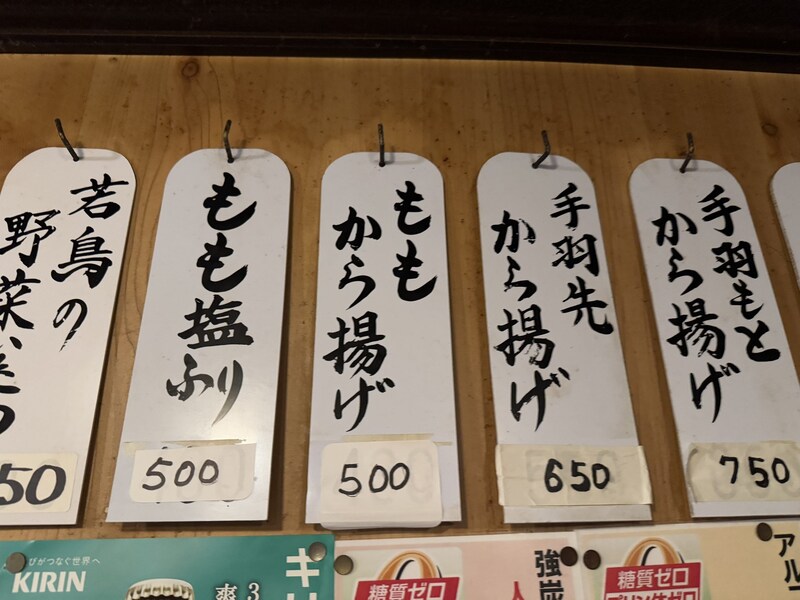 若鳥の
野菜
50
もも塩ふり
500
もも
から揚げ
500
手羽先
から揚げ
650
手羽もと
から揚げ
750
びがつなぐ世界へ
KIRIN
爽
3
キ
糖質ゼロ
強炭
人
糖質ゼロ
プリン体ゼロ
アル